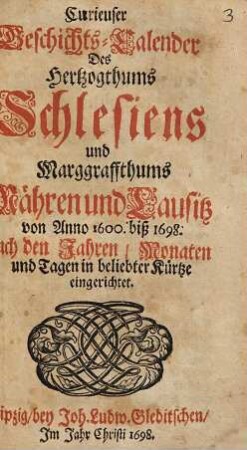 3
Curieuser
Geschichts-Calender
Des
Hertzogthums
Schlesiens
und
Marggraffthums
Mähren und Lausitz
von Anno 1600. biß 1698.
nach den Jahren / Monaten
und Tagen in beliebter Kürtze
eingerichtet.
Leipzig / bey Joh. Ludw. Gleditschen /
Im Jahr Christi 1698.